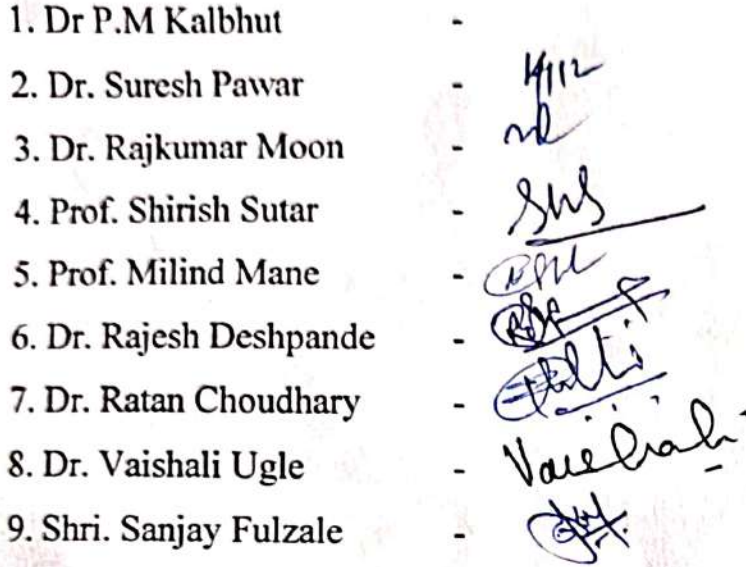 1. Dr P.M Kalbhut -
2. Dr. Suresh Pawar -
3. Dr. Rajkumar Moon -
4. Prof. Shirish Sutar -
5. Prof. Milind Mane -
6. Dr. Rajesh Deshpande -
7. Dr. Ratan Choudhary -
8. Dr. Vaishali Ugle - Vaishali
9. Shri. Sanjay Fulzale -